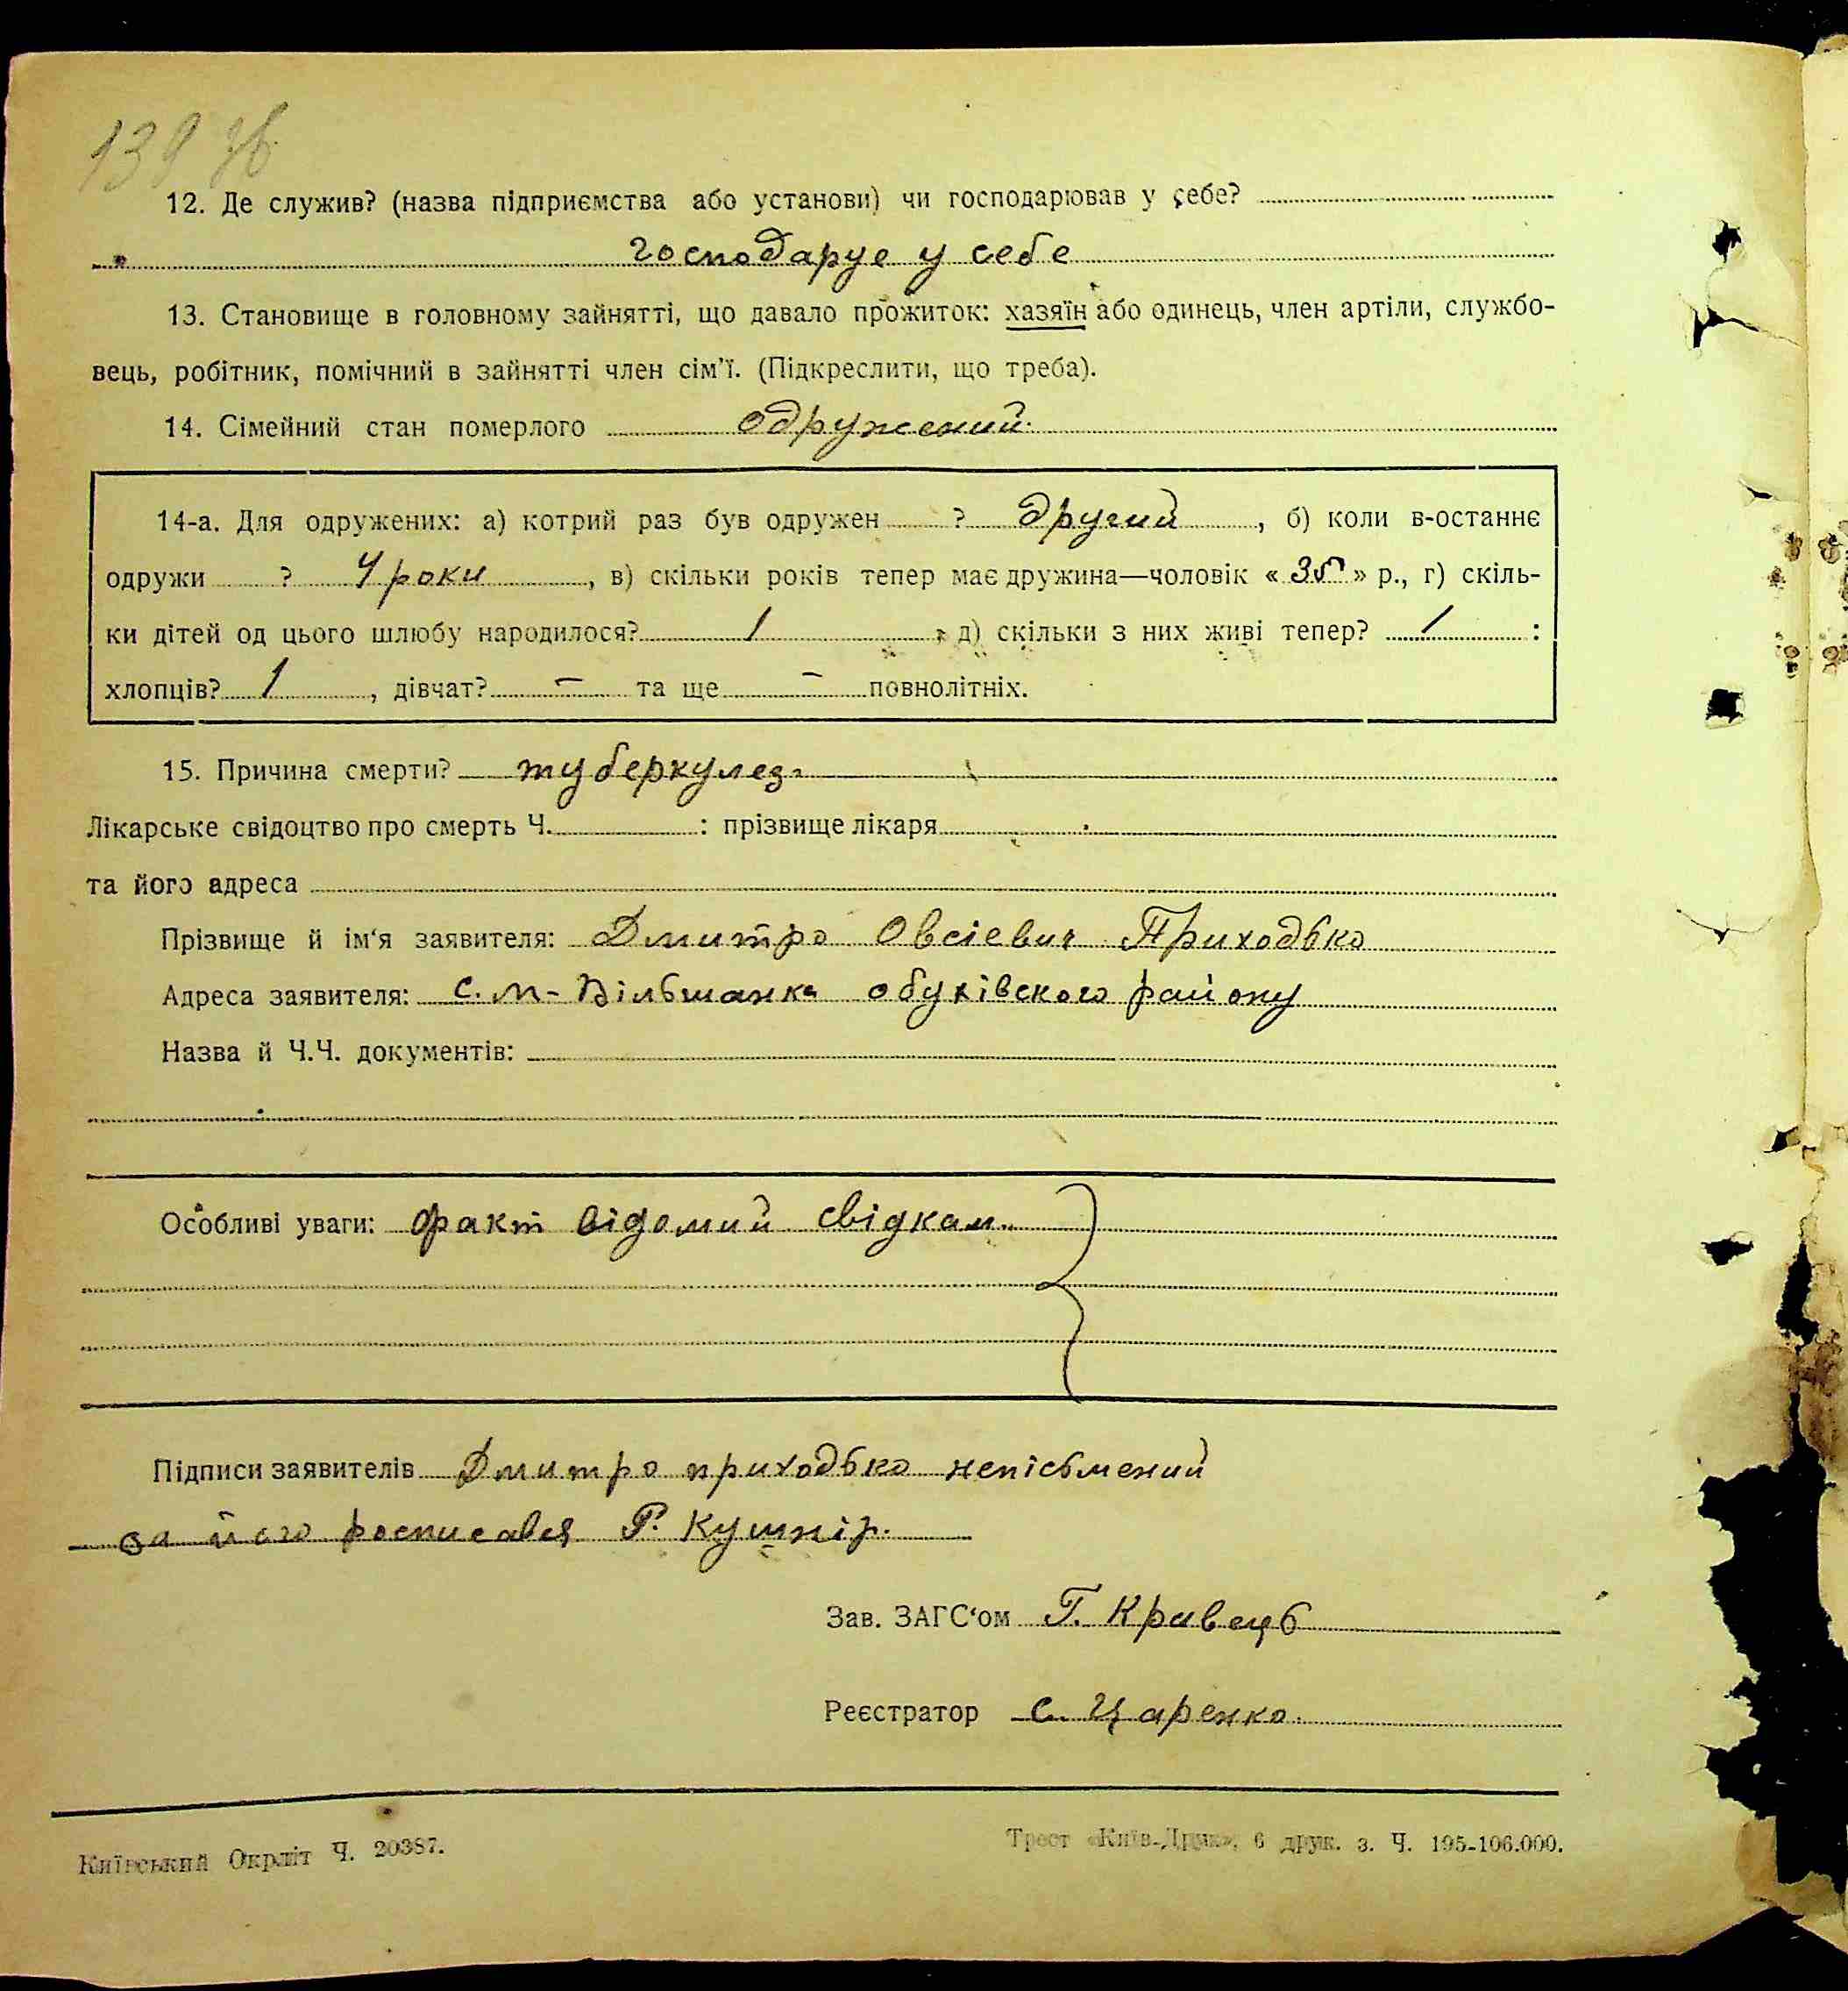 139 зв.
12. Де служив? (назва підприємства або установи) чи господарював у себе?
господаруе у себе
13. Становище в головному зайнятті, що давало прожиток: хазяїн або одинець, член артіли, службо-
вець, робітник, помічний в зайнятті член сім'ї. (Підкреслити, що треба).
14. Сімейний стан померлого одружений.
14-а. Для одружених: а) котрий раз був одружен ? другий, б) коли в-останнє
одружи ? 4 роки, в) скільки років тепер має дружина—чоловік «35» р., г) скіль-
ки дітей од цього шлюбу народилося? 1 ; д) скільки з них живі тепер? 1 :
хлопців? 1, дівчат? – та ще – повнолітніх.
15. Причина смерти? туберкулез.
Лікарське свідоцтво про смерть Ч. : прізвище лікаря
та його адреса
Прізвище й ім'я заявителя: Дмитро Овсіевич Приходько
Адреса заявителя: с. М-Вільшанка обухівского району
Назва й Ч.Ч. документів:
Особливі уваги: факт відомий свідкам.
Підписи заявителів Дмитро приходько неписьмений
за його росписався Р. Кушнір.
Зав. ЗАГС'ом Г. Кравець
Реєстратор С. Царенко.
Київський Окрліт Ч. 20387.
Трест «Київ-Друк», 6 друк. з. Ч. 195-106.000.